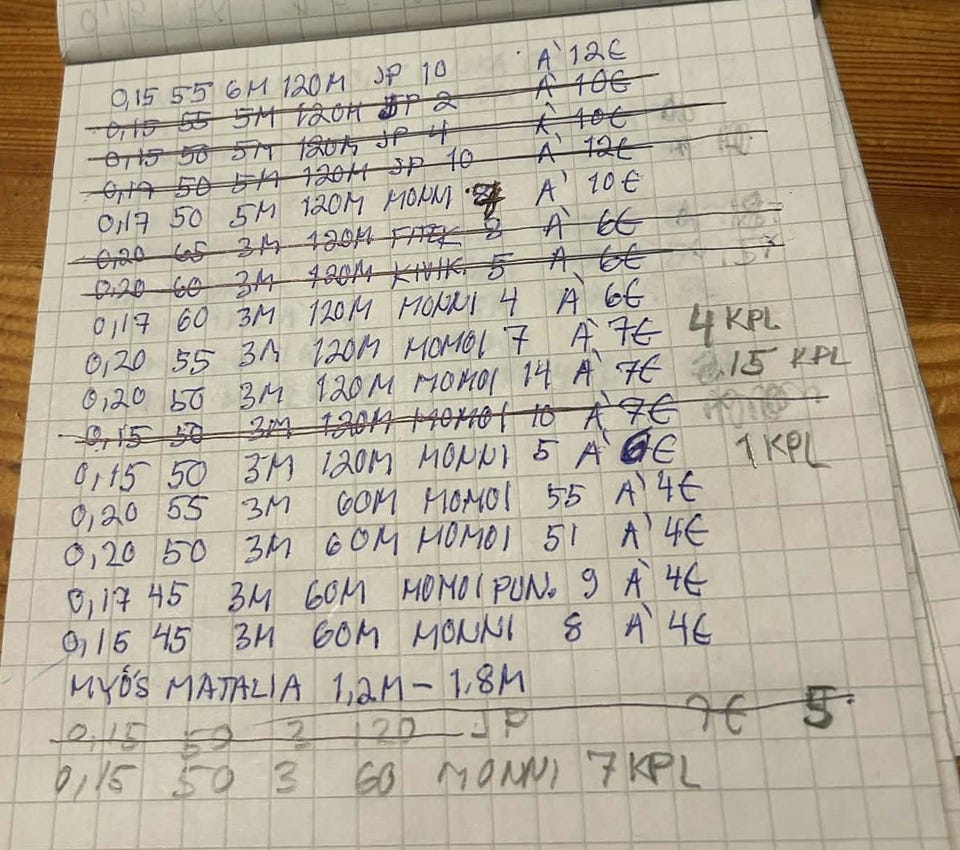 0,15 55 6M 120M JP 10 A' 12€
0,15 55 5M 120M JP 2 A' 10€
0,15 50 5M 120M JP 4 A' 10€
0,17 50 5M 120M JP 10 A' 12€
0,17 50 5M 120M MONNI A' 10€
0,20 65 3M 120M 8 A' 6€
0,20 60 3M 120M KIVIK. 5 A 6€
0,17 60 3M 120M MONNI 4 A' 6€
0,20 55 3M 120M MOMOI 7 A' 7€ 4 KPL
0,20 50 3M 120M MOMOI 14 A' 7€ 15 KPL
0,15 50 3M 120M MOMOI 10 A' 7€
0,15 50 3M 120M MONNI 5 A' 6€ 1 KPL
0,20 55 3M 60M MOMOI 55 A' 4€
0,20 50 3M 60M MOMOI 51 A' 4€
0,17 45 3M 60M MOMOI PUN. 9 A' 4€
0,15 45 3M 60M MONNI 8 A' 4€
MYÖS MATALIA 1,2M - 1,8M
0,15 50 3 120 JP 7€ 5
0,15 50 3 60 MONNI 7 KPL